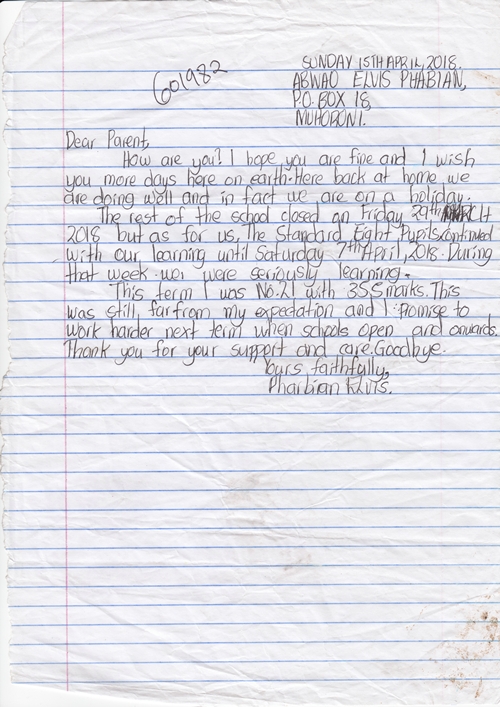 601982
SUNDAY 15TH APRIL, 2018.
ABWAO ELVIS PHABIAN,
P.O. BOX 18,
MUHORONI.
Dear Parent,
How are you? I hope you are fine and I wish
you more days here on earth. Here back at home we
are doing well and in fact we are on a holiday.
The rest of the school closed on Friday 29th
2018 but as for us, The Standard Eight Pupils continued
with our learning until Saturday 7th April, 2018. During
that week we were seriously learning.
This term I was No. 21 with 355 marks. This
was still far from my expectation and I promise to
work harder next term when schools open and onwards.
Thank you for your support and care. Goodbye.
Yours faithfully,
Pharbian ELVIS.